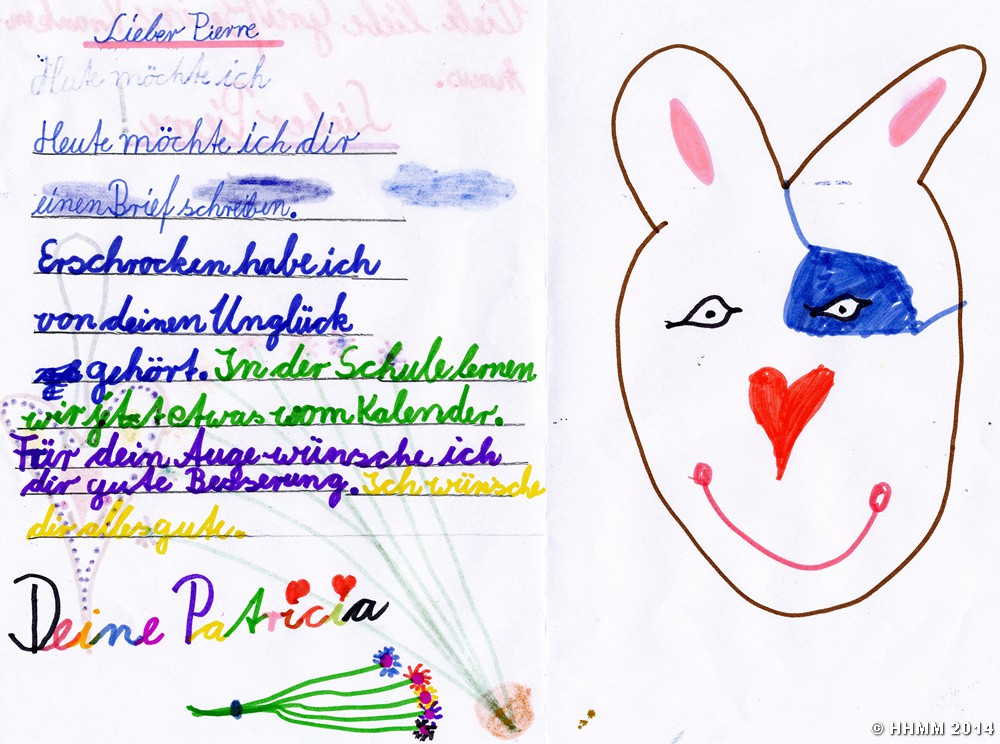 Lieber Pierre
Heute möchte ich
Heute möchte ich dir
einen Brief schreiben.
Erschrocken habe ich
von deinen Unglück
gehört. In der Schule lernen
wir jetzt etwas vom Kalender.
Für dein Auge wünsche ich
dir gute Besserung. Ich wünsche
dir alles gute.
Deine Patricia
© HHMM 2014